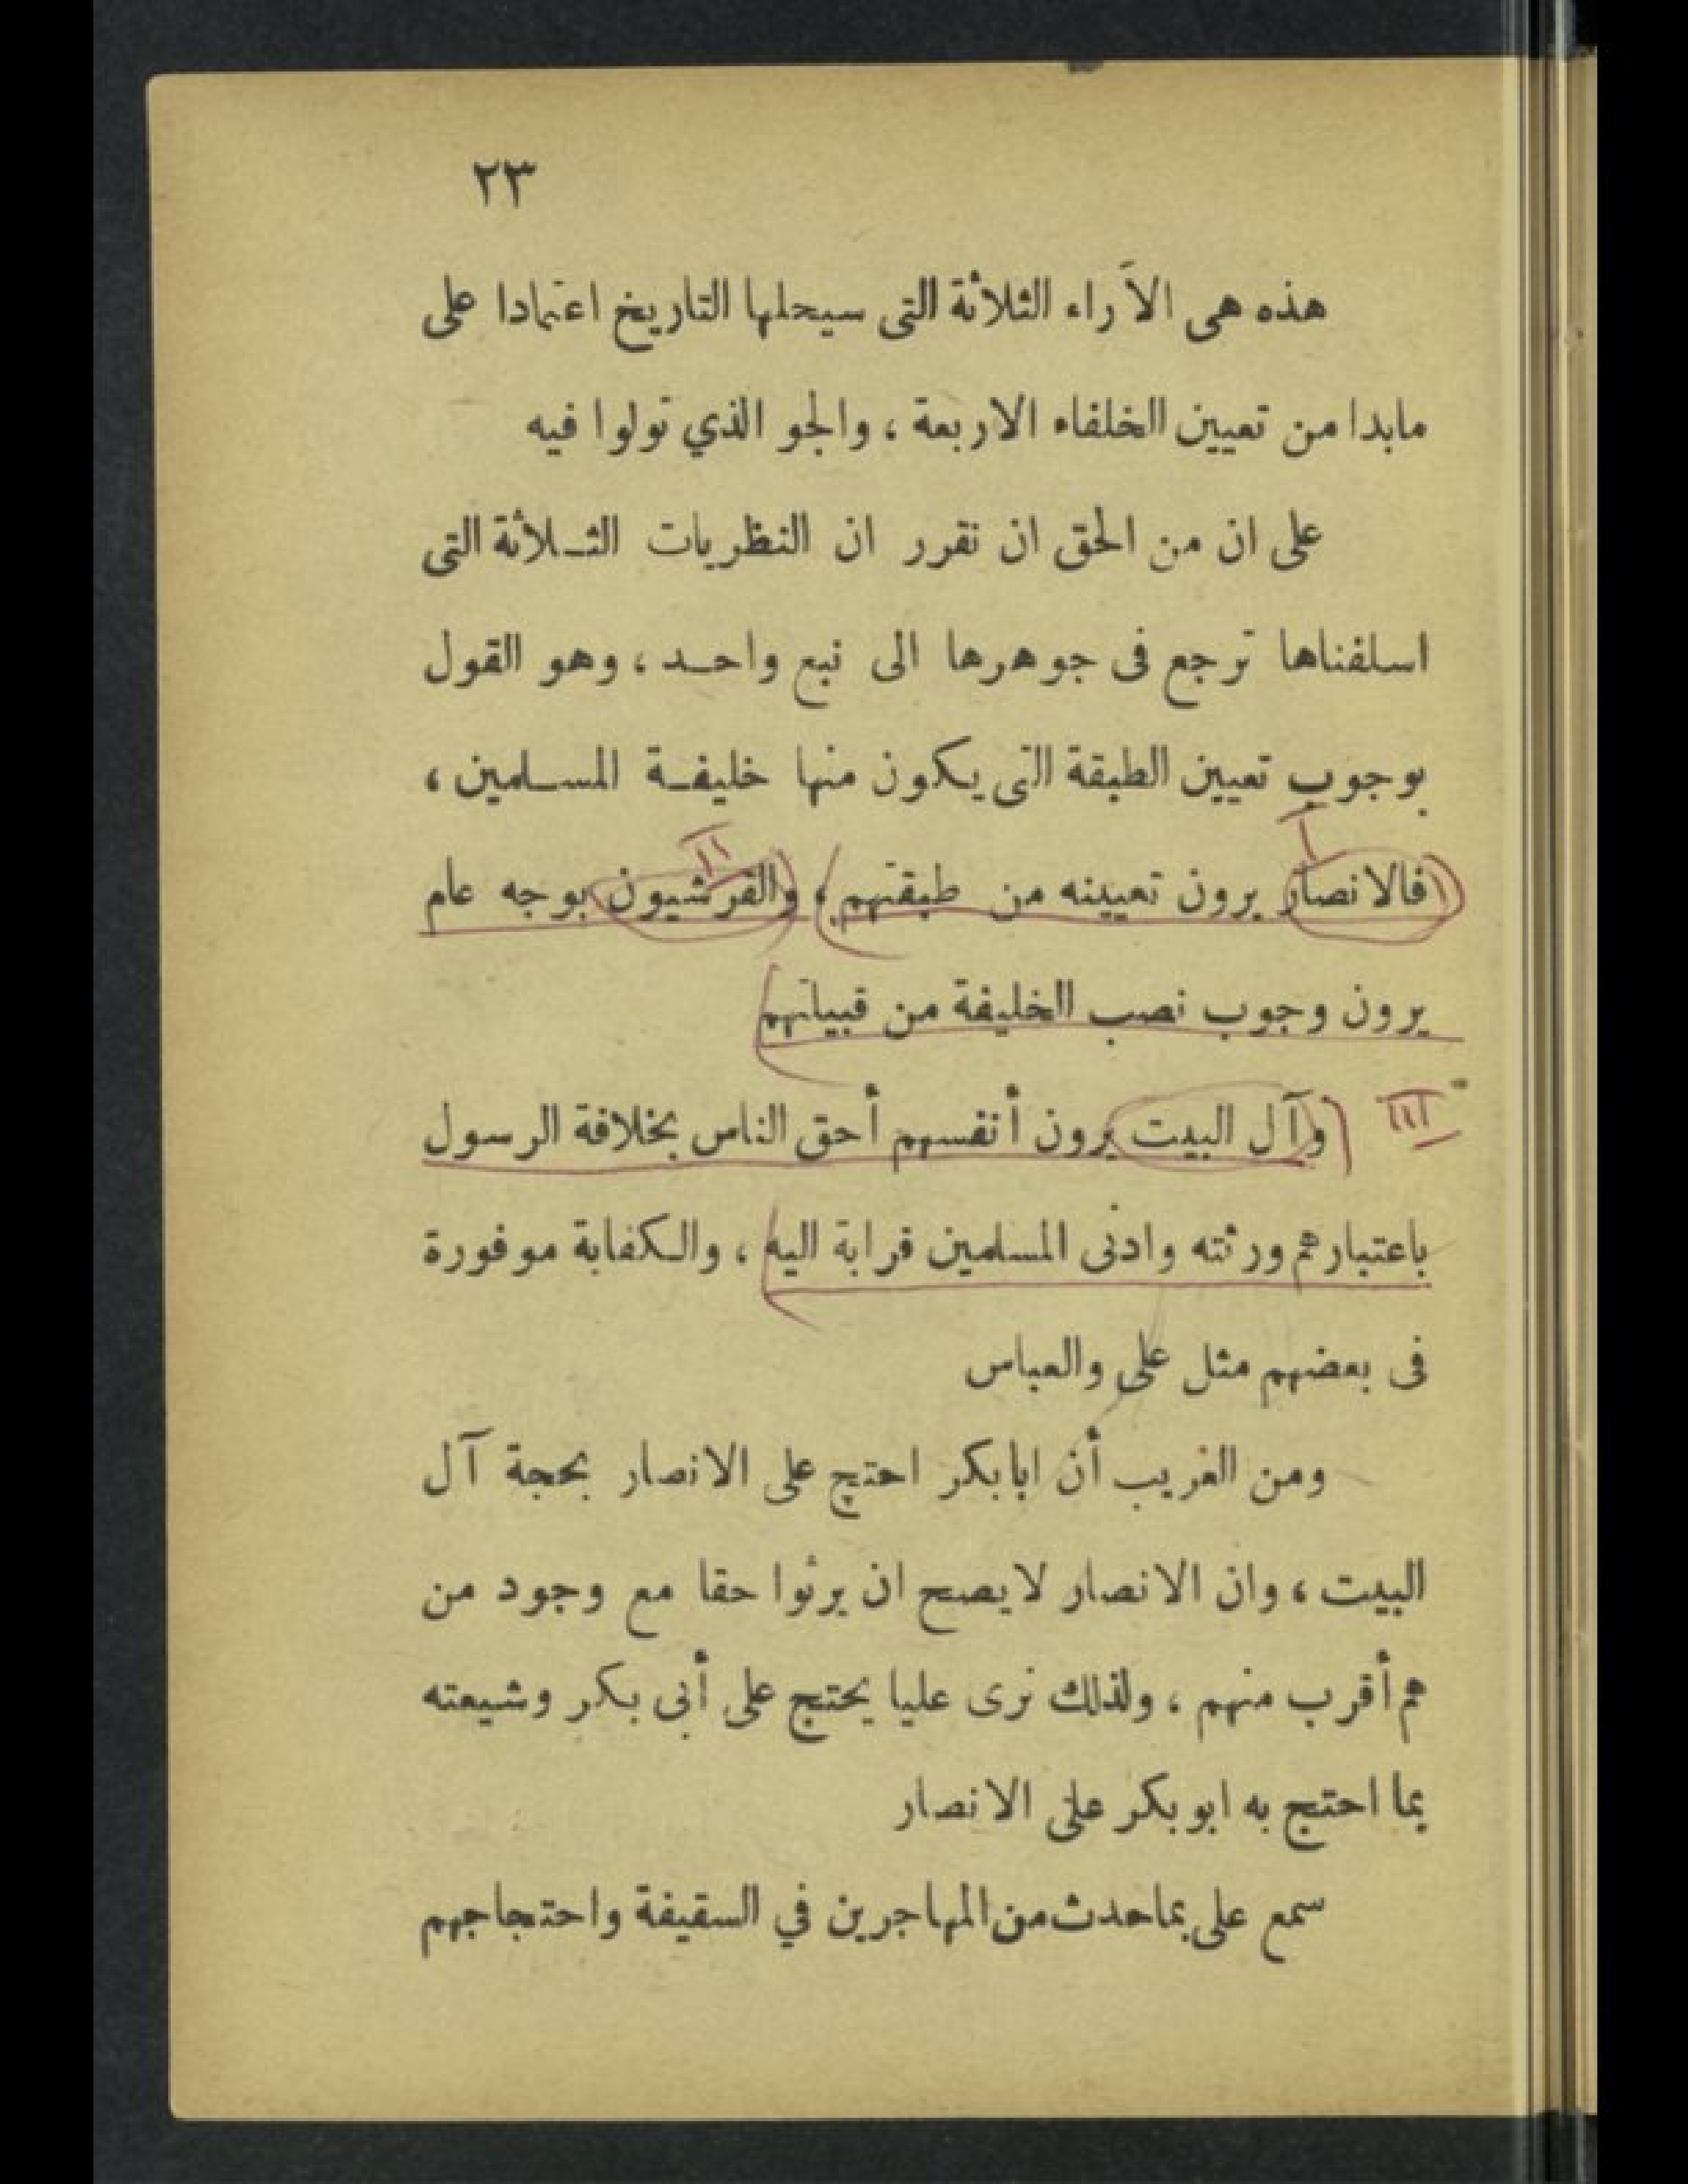 ٢٣
هذه هى الآراء الثلاثة التى سيحلها التاريخ اعتمادا على
مابدا من تعيين الخلفاء الاربعة ، والجو الذي تولوا فيه
على ان من الحق ان نقرر ان النظريات الثـلاثة التى
اسلفناها ترجع فى جوهرها الى نبع واحـد ، وهو القول
بوجوب تعيين الطبقة التى يكون منها خليفـة المسـلمين ،
I
II
فالانصار يرون تعيينه من طبقتهم ، والقرشيون بوجه عام
يرون وجوب نصب الخليفة من قبيلتهم
III
وآل البيت يرون أنفسهم أحق الناس بخلافة الرسول
باعتبارهم ورثته وادنى المسلمين قرابة اليه ، والكفاية موفورة
فى بعضهم مثل على والعباس
ومن الغريب أن ابابكر احتج على الانصار بحجة آل
البيت ، وان الانصار لايصح ان يرثوا حقا مع وجود من
هم أقرب منهم ، ولذلك نرى عليا يحتج على أبى بكر وشيعته
بما احتج به ابو بكر على الانصار
سمع على بماحدث من المهاجرين في السقيفة واحتجاجهم